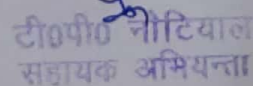 टी0पी0 नौटियाल
सहायक अभियन्ता